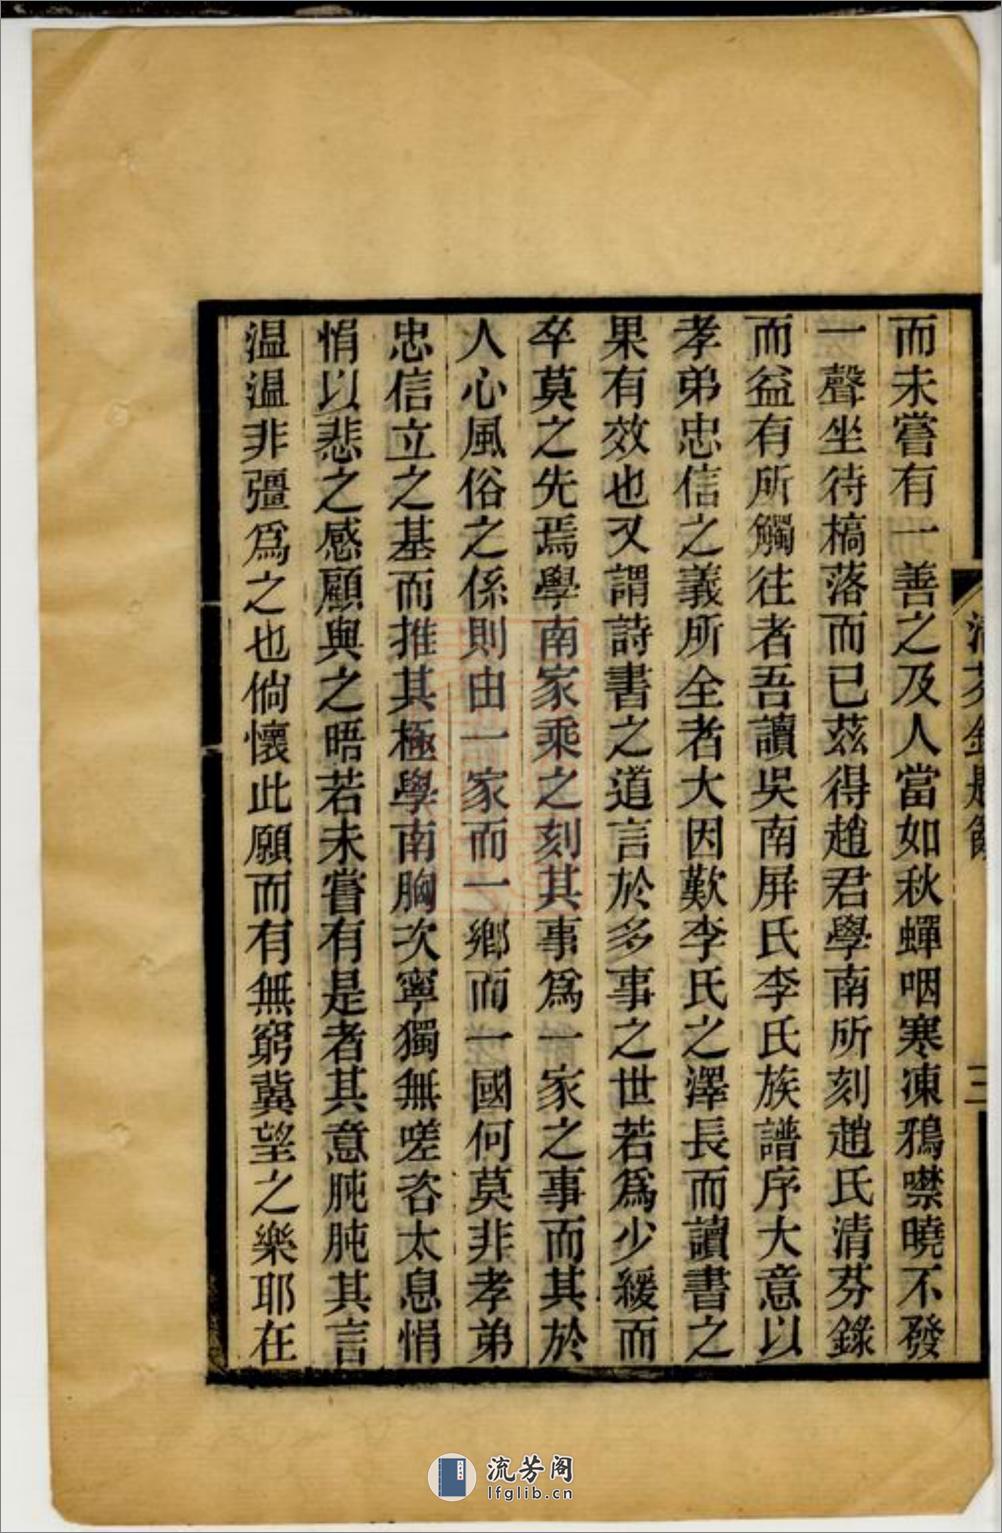 而未嘗有一善之及人當如秋蟬咽寒凍鴉噤曉不發
一聲坐待槁落而已茲得趙君學南所刻趙氏清芬錄
而益有所觸往者吾讀吳南屏氏李氏族譜序大意以
孝弟忠信之義所全者大因歎李氏之澤長而讀書之
果有效也又謂詩書之道言於多事之世若爲少緩而
卒莫之先焉學南家乘之刻其事爲一家之事而其於
人心風俗之係則由一家而一鄉而一國何莫非孝弟
忠信立之基而推其極學南胸次寧獨無嗟咨太息悁
悁以悲之感顧與之晤若未嘗有是者其意肫肫其言
溫溫非彊爲之也倘懷此願而有無窮冀望之樂耶在
三
流芳阁
lfglib.cn